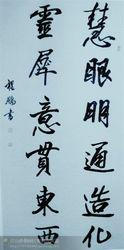 慧眼明通造化
靈犀意貫東西